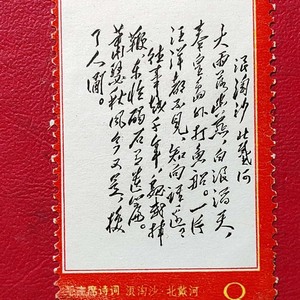 浪淘沙 北戴河
大雨落幽燕,白浪滔天,
秦皇岛外打魚船。一片
汪洋都不見,知向誰邊?
往事越千年,魏武挥
鞭,东临碣石有遗篇。
萧瑟秋风今又是,换
了人间。
毛主席诗词 浪淘沙·北戴河